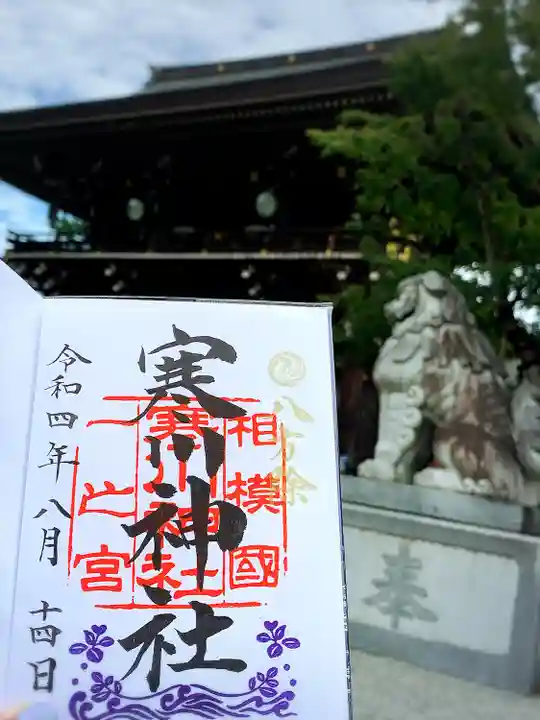 八方除
寒川神社
相模國
寒川神社
一之宮
令和四年八月十四日
奉